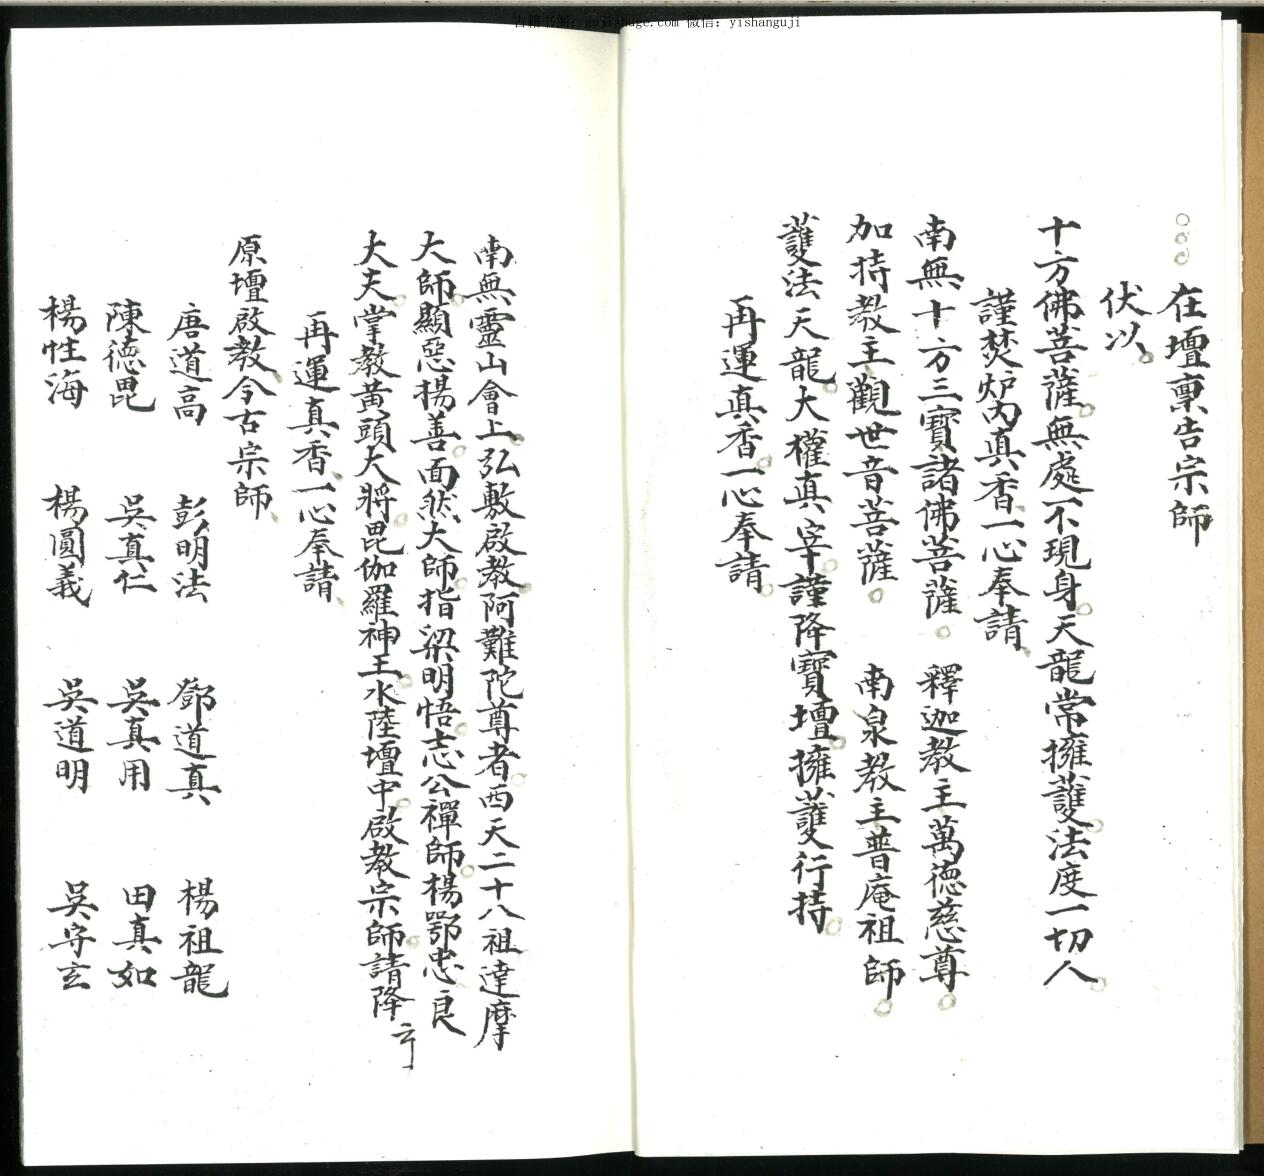 古籍书阁：gujishuge.com 微信：yishanguji
○○○在壇稟告宗師
伏以。
十方佛菩薩。無處不現身。天龍常擁護。法度一切人。
謹焚炉內真香。一心奉請、
南無十方三寶諸佛菩薩。釋迦教主萬德慈尊。
加持教主。觀世音菩薩。南泉教主普庵祖師。
護法天龍。大權真宰。謹降寶壇。擁護行持。
再運真香。一心奉請。
南無靈山會上。弘敷啟教。阿難陀尊者。西天二十八祖達摩
大師。顯惡揚善。面然大師。指梁明悟。志公禪師。楊鄂忠良
大夫。掌教黃頭大將。毘伽羅神王。水陸壇中。啟教宗師。請降
再運真香、一心奉請、
原壇啟教、今古宗師、
唐道高 彭明法 鄧道真 楊祖龍
陳德毘 吳真仁 吳真用 田真如
楊性海 楊圓義 吳道明 吳守玄